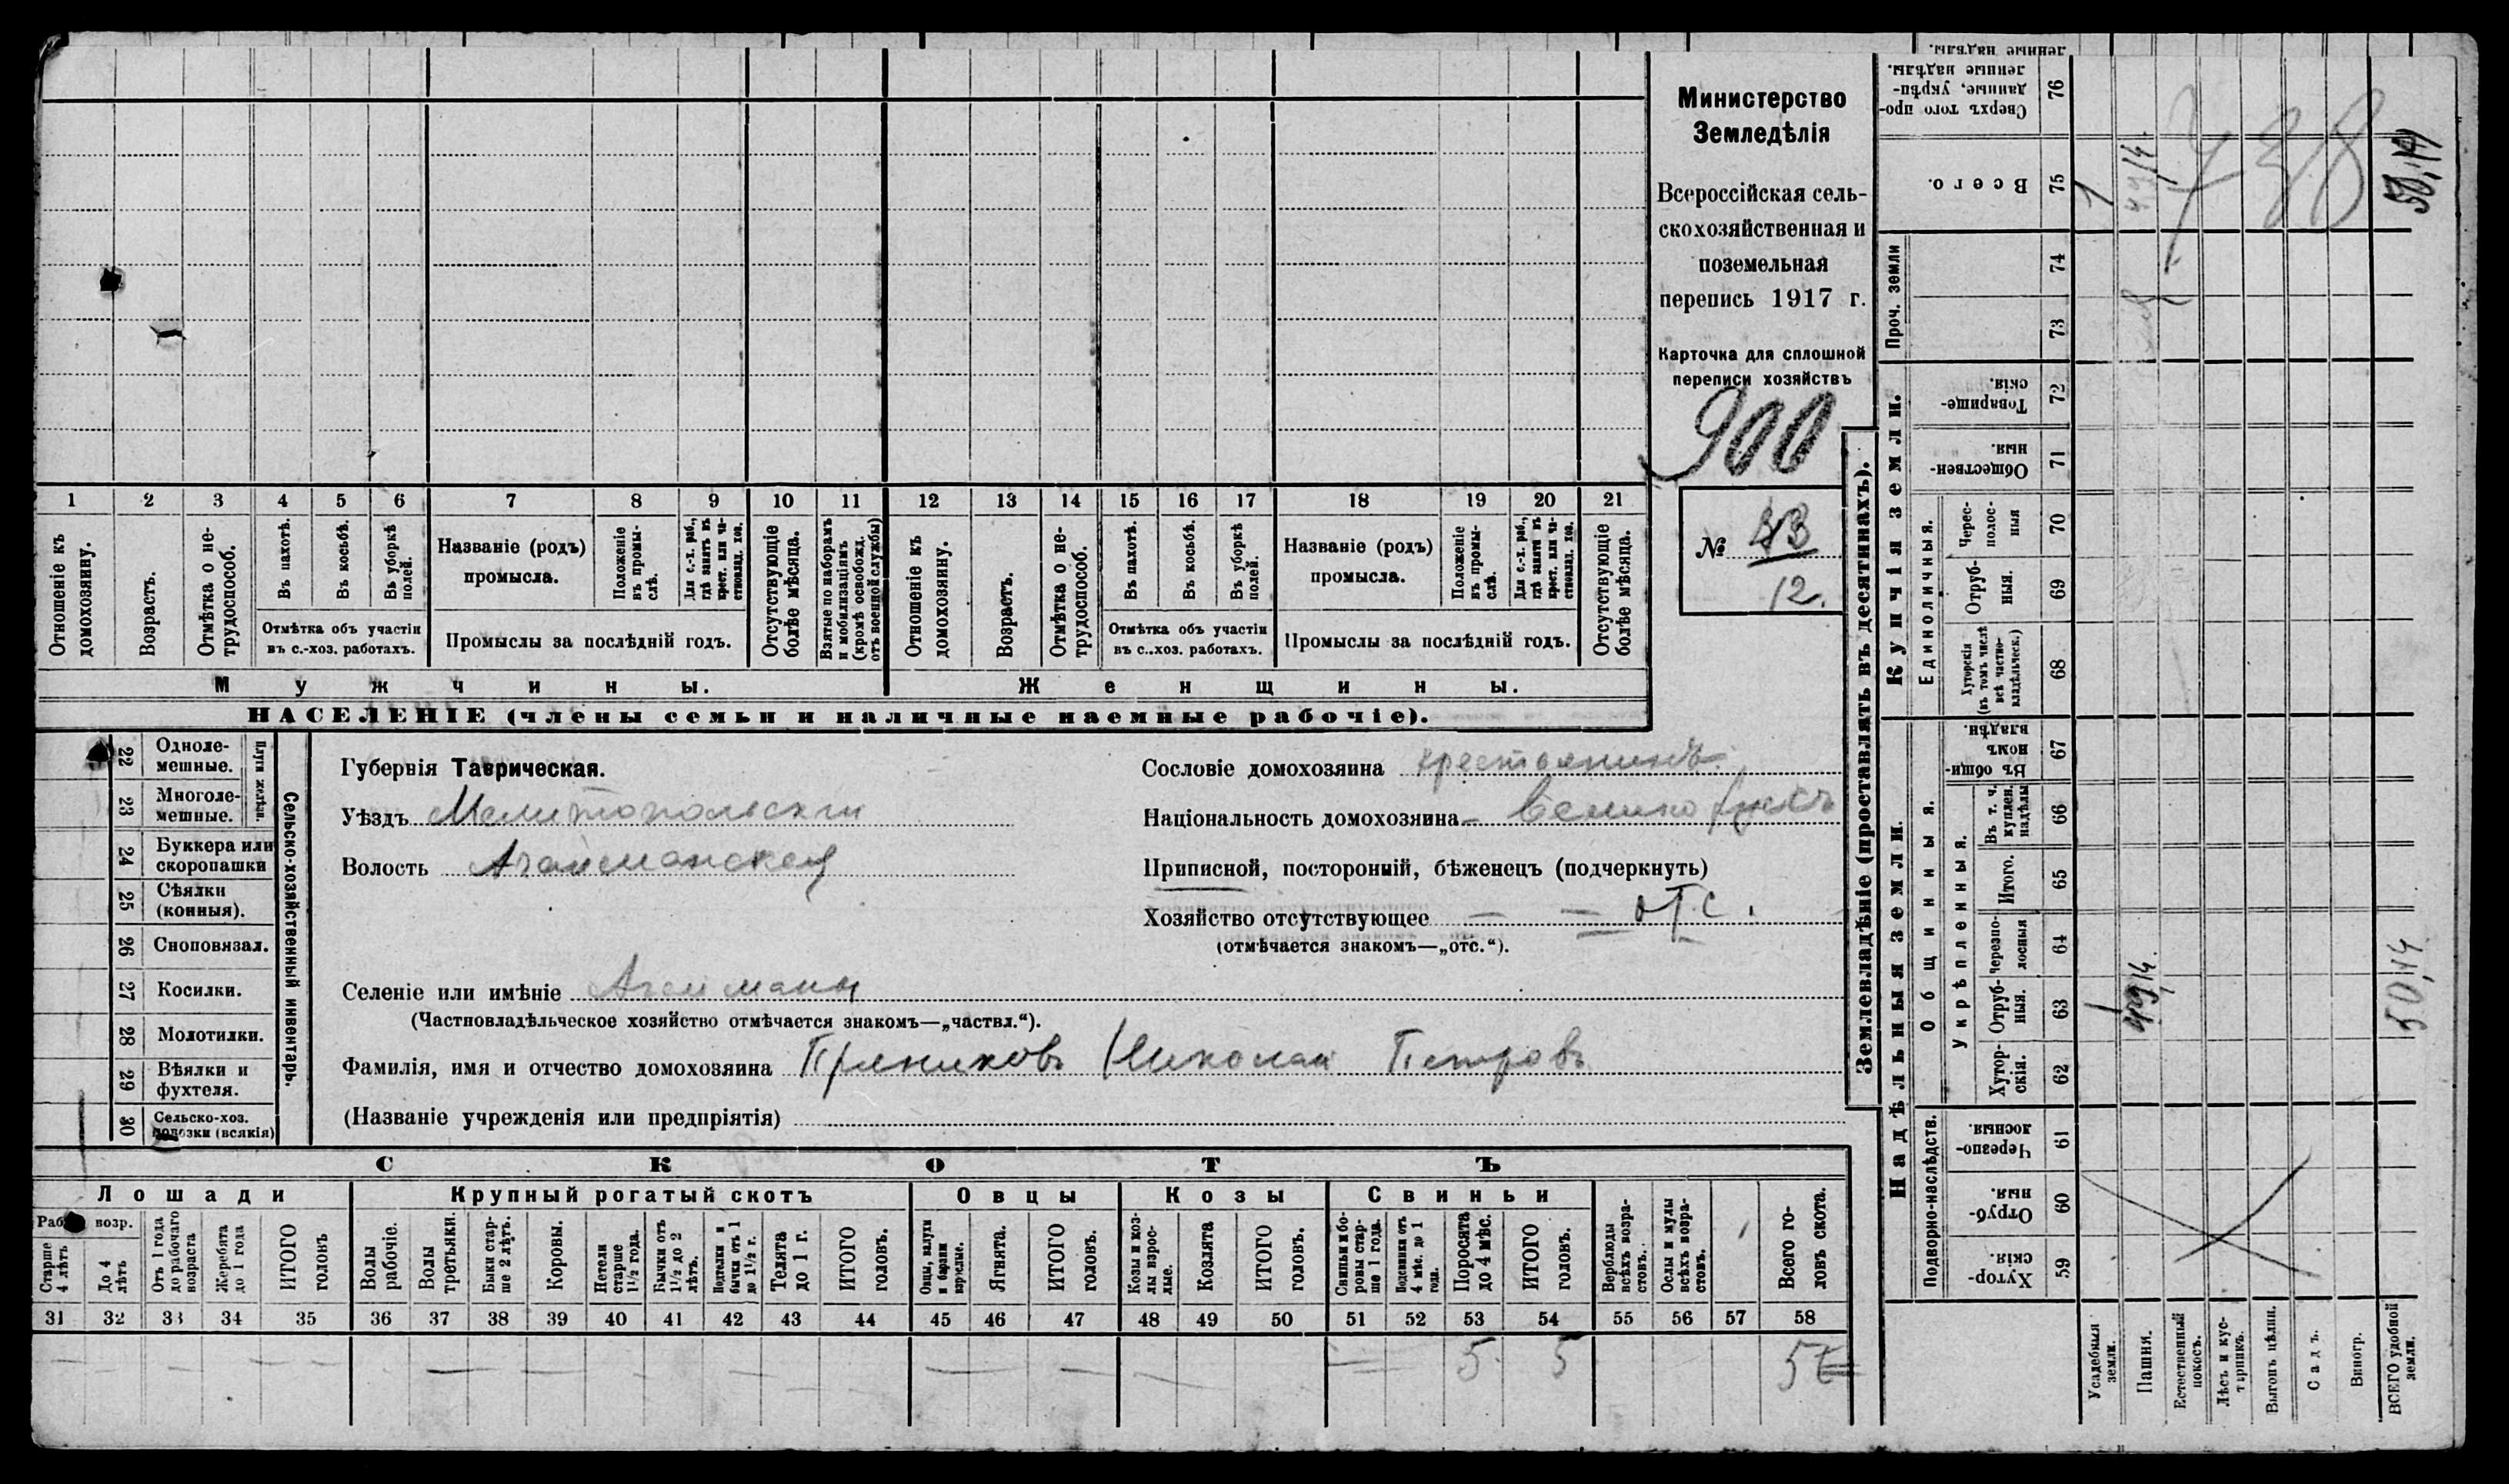 Министерство
Земледѣлія
Всероссійская сель-
скохозяйственная и
поземельная
перепись 1917 г.
Карточка для сплошной
переписи хозяйствъ
900
№ 43
12.
1 2 3 4 5 6 7 8 9 10 11 12 13 14 15 16 17 18 19 20 21
Отношеніе къ домохозяину.
Возрастъ.
Отмѣтка о не-трудоспособ.
Въ пахотѣ.
Въ косьбѣ.
Въ уборкѣ полей.
Отмѣтка объ участіи
въ с.-хоз. работахъ.
Названіе (родъ)
промысла.
Положеніе въ промы-слѣ.
Для с.-х. раб., гдѣ занятъ въ крест. или ча-стновлад. хоз.
Промыслы за послѣдній годъ.
Отсутствующіе болѣе мѣсяца.
Взятые по наборамъ и мобилизаціямъ (кромѣ освобожд. отъ военной службы)
Отношеніе къ домохозяину.
Возрастъ.
Отмѣтка о не-трудоспособ.
Въ пахотѣ.
Въ косьбѣ.
Въ уборкѣ полей.
Отмѣтка объ участіи
въ с..хоз. работахъ.
Названіе (родъ)
промысла.
Положеніе въ промы-слѣ.
Для с.-х. раб., гдѣ заняти въ крест. или ча-стновлад. хоз.
Промыслы за послѣдній годъ.
Отсутствующіе болѣе мѣсяца.
Мужчины.
Женщины.
НАСЕЛЕНІЕ (члены семьи и наличные наемные рабочіе).
22 Одноле-мешные.
23 Многоле-мешные.
Плуги желѣзн.
24 Буккера или скоропашки
25 Сѣялки (конныя).
26 Сноповязал.
27 Косилки.
28 Молотилки.
29 Вѣялки и фухтеля.
30 Сельско-хоз. повозки (всякія)
Сельско-хозяйственный инвентарь.
Губернія Таврическая.
Уѣздъ Мелитопольскій
Волость Агайманская
Селеніе или имѣніе Агайманы
(Частновладѣльческое хозяйство отмѣчается знакомъ—„частвл.“).
Фамилія, имя и отчество домохозяина Пряниковъ Николай Петровъ
(Названіе учрежденія или предпріятія)
Сословіе домохозяина крестьянинъ
Національность домохозяина великоруссъ
Приписной, посторонній, бѣженецъ (подчеркнуть)
Хозяйство отсутствующее отс.
(отмѣчается знакомъ—„отс.“).
СКОТЪ
Лошади
Крупный рогатый скотъ
Овцы
Козы
Свиньи
возр.
Старше 4 лѣтъ
До 4 лѣтъ
Отъ 1 года до рабочаго возраста
Жеребята до 1 года
ИТОГО головъ
Волы рабочіе.
Волы третьяки.
Быки стар-ше 2 лѣтъ.
Коровы.
Нетели старше 1½ года.
Бычки отъ 1½ до 2 лѣтъ.
Подтелки и бычки отъ 1 до 1½ г.
Телята до 1 г.
ИТОГО головъ.
Овцы, валухи и бараны взрослые.
Ягнята.
ИТОГО головъ.
Козы и коз-лы взрос-лые.
Козлята
ИТОГО головъ.
Свиньи и бо-ровы стар-ше 1 года.
Подсвинки отъ 4 мѣс. до 1 года.
Поросята до 4 мѣс.
ИТОГО головъ.
Верблюды всѣхъ возра-стовъ.
Ослы и мулы всѣхъ возра-стовъ.
Всего го-ловъ скота.
31 32 33 34 35 36 37 38 39 40 41 42 43 44 45 46 47 48 49 50 51 52 53 54 55 56 57 58
5 5 5
Землевладѣніе (проставлять въ десятинахъ).
Надѣльныя земли.
Купчія земли.
Проч. земли
Подворно-наслѣдств.
Общинныя.
Укрѣпленныя.
Единоличныя.
Хутор-скія. 59
Отруб-ныя. 60
Черезпо-лосныя. 61
Хутор-скія. 62
Отруб-ныя. 63
Черезпо-лосныя 64
Итого. 65
Въ т. ч. куплен. надѣлы 66
Въ общи-номъ владѣн. 67
Хуторскія (въ томъ числѣ всѣ частно-владѣльческ.) 68
Отруб-ныя. 69
Черес-полос-ныя 70
Обществен-ныя. 71
Товарище-скія. 72
73
74
Всего. 75
Сверхъ того про-данные, укрѣп-ленные надѣлы. 76
ленные надѣлы.
Усадебныя земли.
Пашня.
Естественный покосъ.
Лѣсъ и кус-тарникъ.
Выгонъ цѣлин.
Садъ.
Виногр.
ВСЕГО удобной земли.
1
49,14.
50,14
1
49,14.
50,14
738